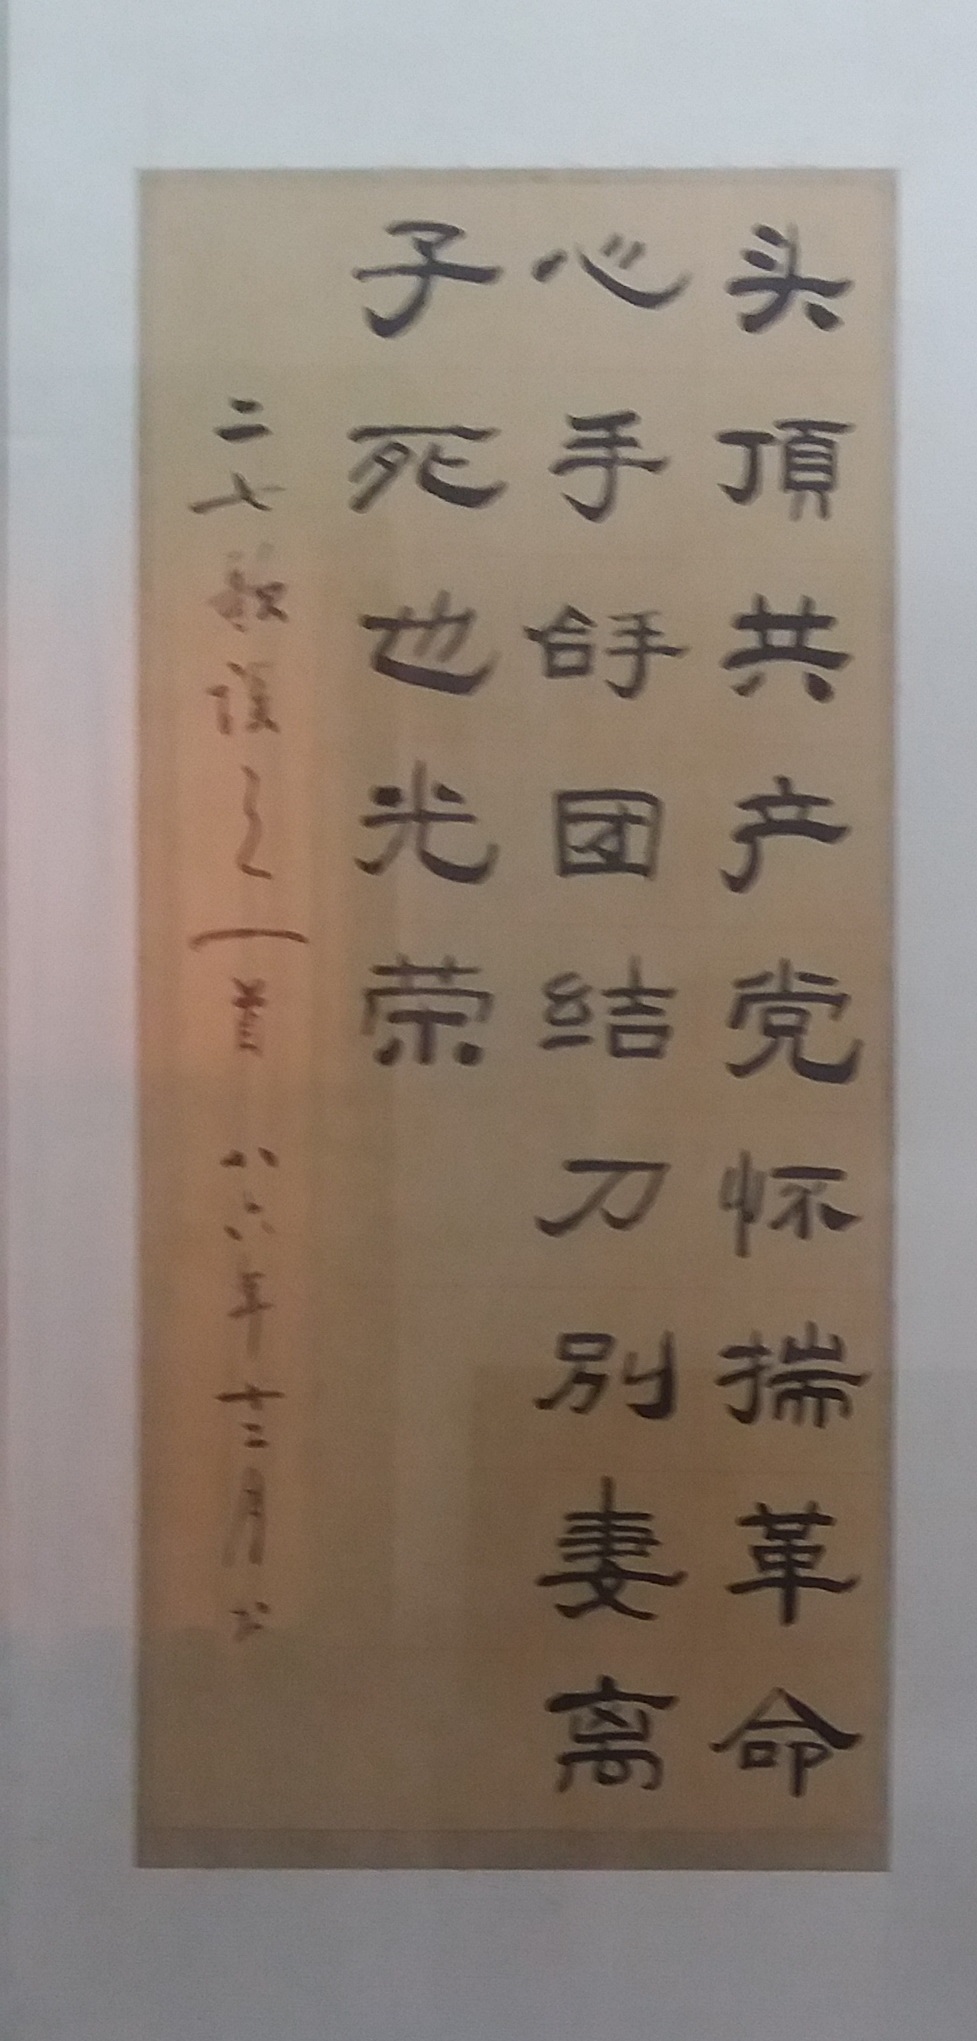 头頂共产党怀揣革命
心手拿团结刀别妻离
子死也光荣
二七歌谣之一首 八六年十二月